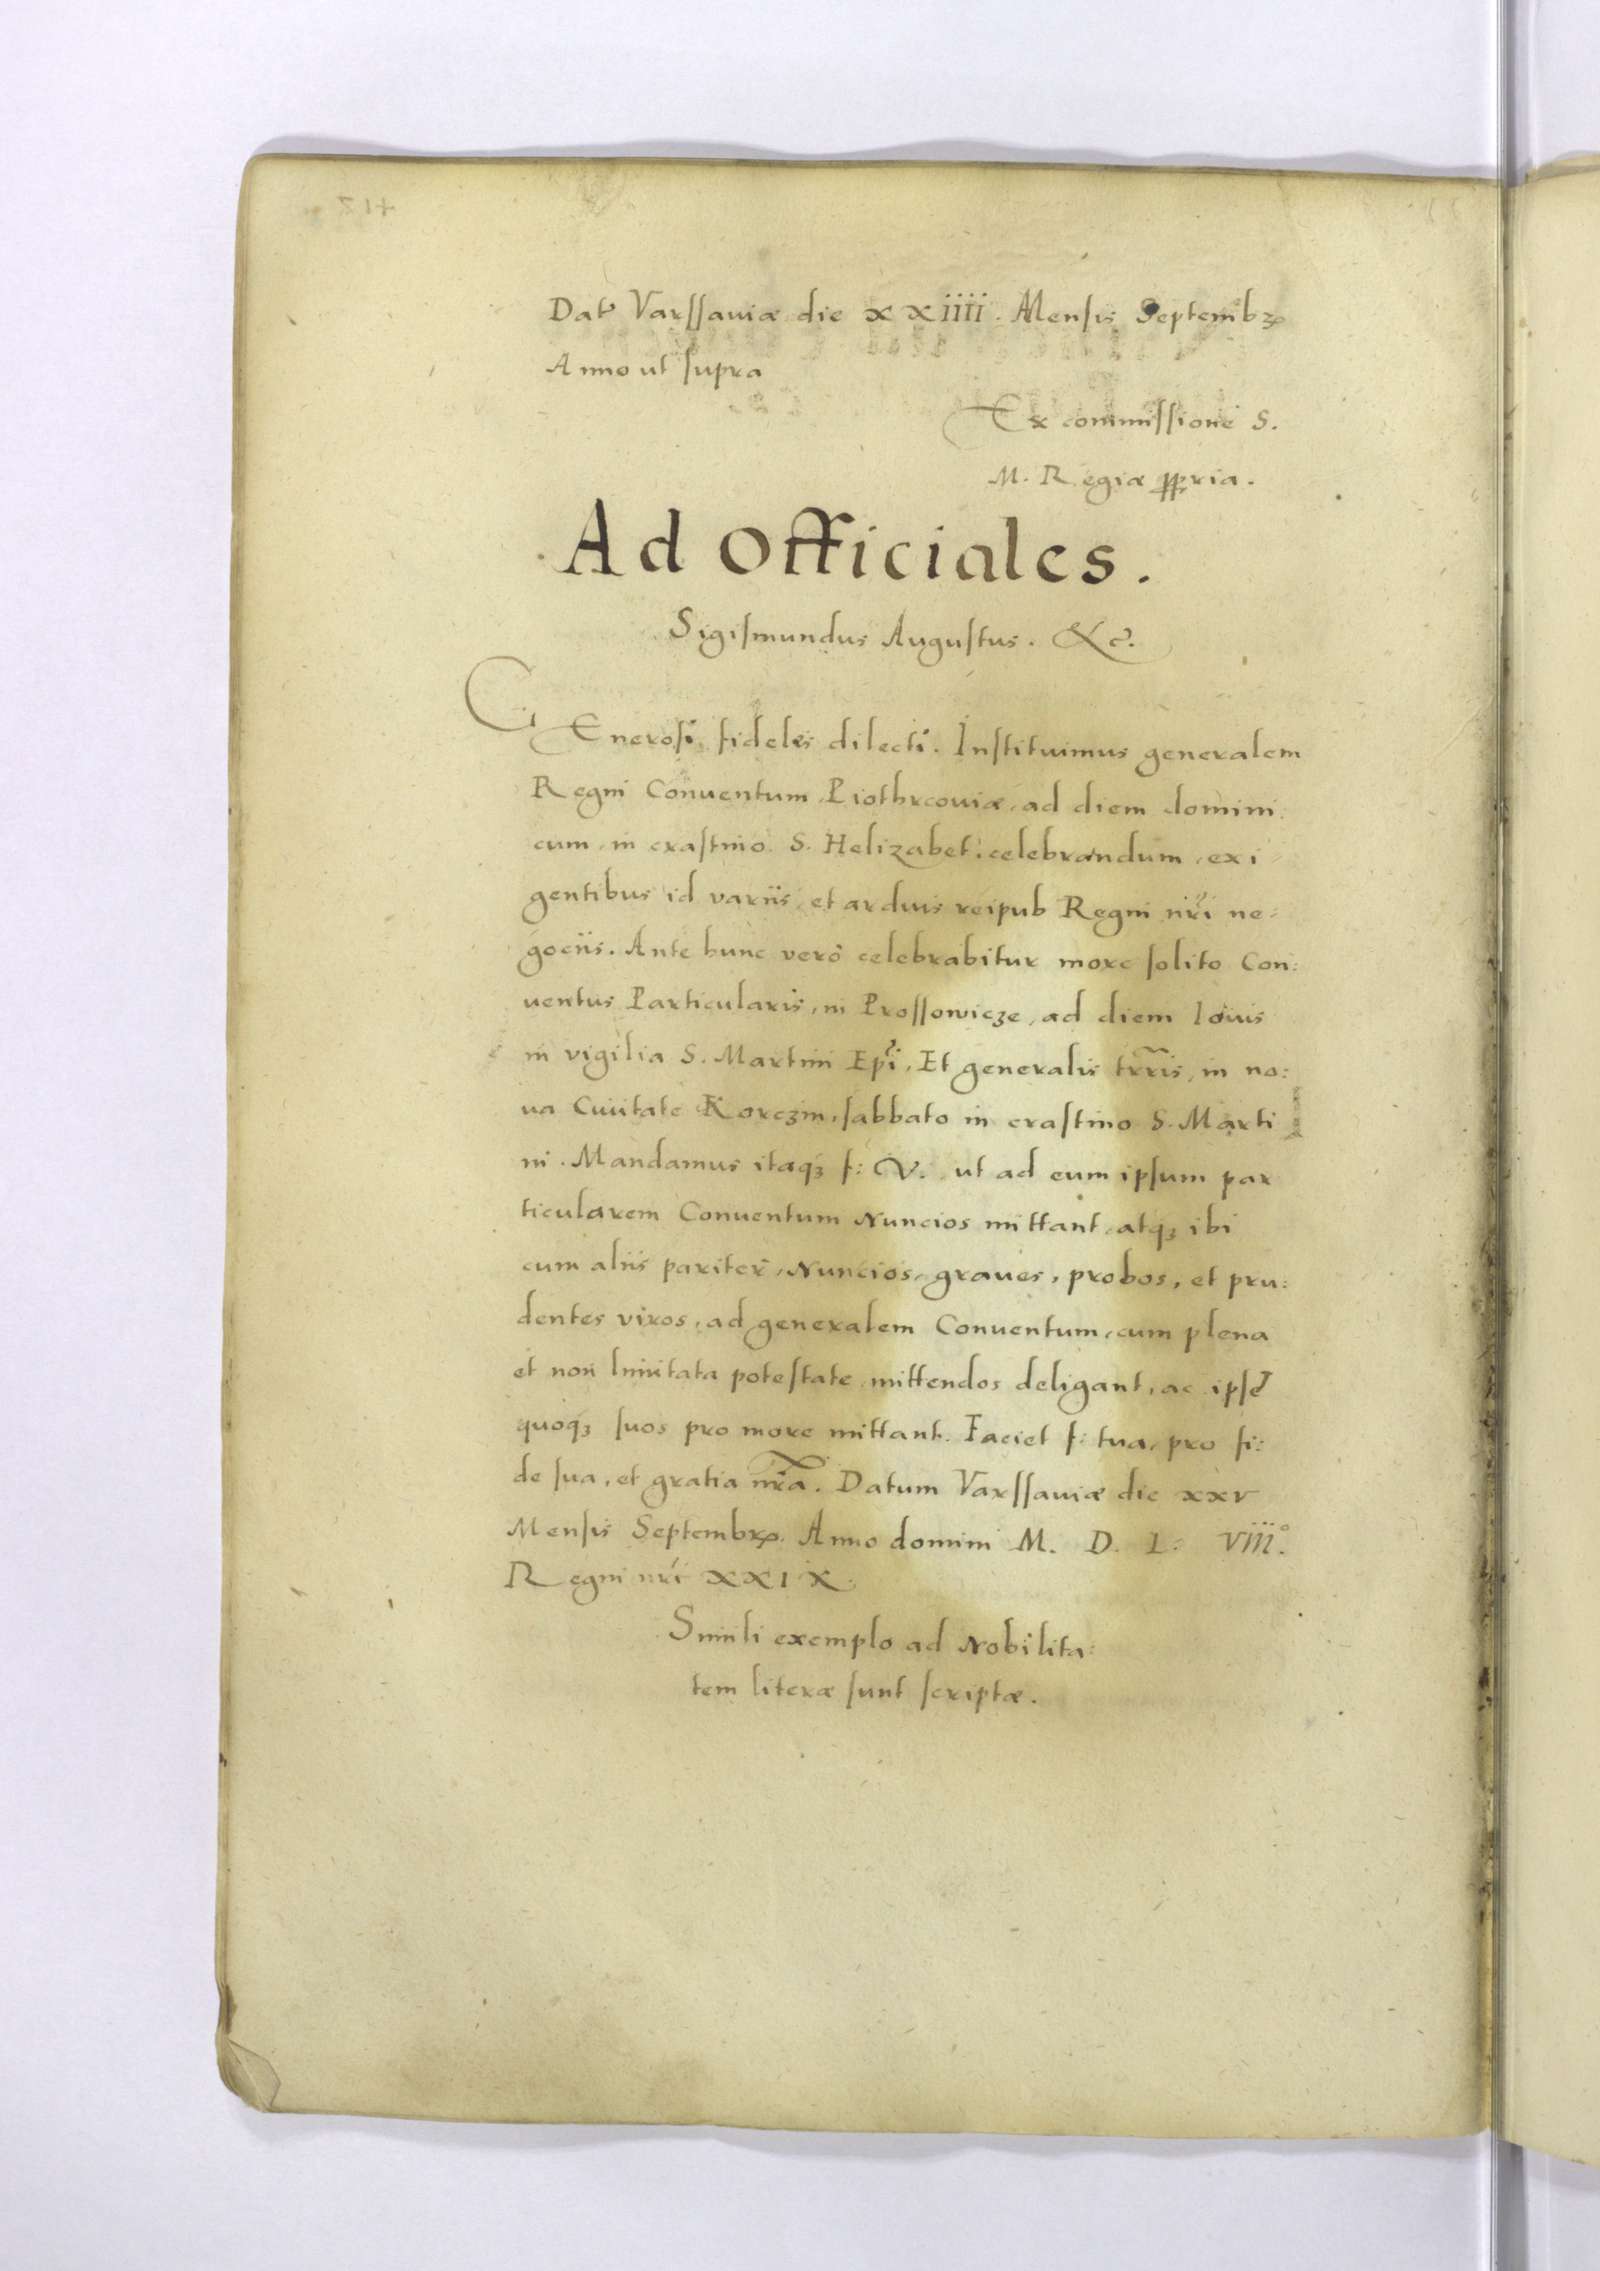 Dat Varssauiæ die XXiiii. Mensis Septembr
Anno ut supra
Ex commissione S.
M. Regiæ ppria.
Ad Officiales.
Sigismundus Augustus. &c.
GEnerosi, fideles dilecti. Instituimus generalem
Regni Conuentum, Piothrcouiæ, ad diem domini:
cum, in crastino S. Helizabet: celebrandum, exi
gentibus id variis, et arduis reipub Regni nri ne:
gociis. Ante hunc verò celebrabitur more solito Con:
uentus Particularis, in Prossowicze, ad diem Iouis
in vigilia S. Martini Epi, Et generalis trris, in no:
ua Ciuitate Korczin, sabbato in crastino S. Marti
ni. Mandamus itaqʒ f: V. ut ad eum ipsum par
ticularem Conuentum Nuncios mittant, atqʒ ibi
cum aliis pariter, Nuncios, graues, probos, et pru:
dentes viros, ad generalem Conuentum, cum plena
et non limitata potestate mittendos deligant, ac ipsę
quoqʒ suos pro more mittant. Faciet f: tua, pro fi:
de sua, et gratia nra. Datum Varssauiæ die xxv
Mensis Septembr. Anno domini M. D. L: Viii.°
Regni nri XXIX.
Simili exemplo ad Nobilita:
tem literæ sunt scriptæ.